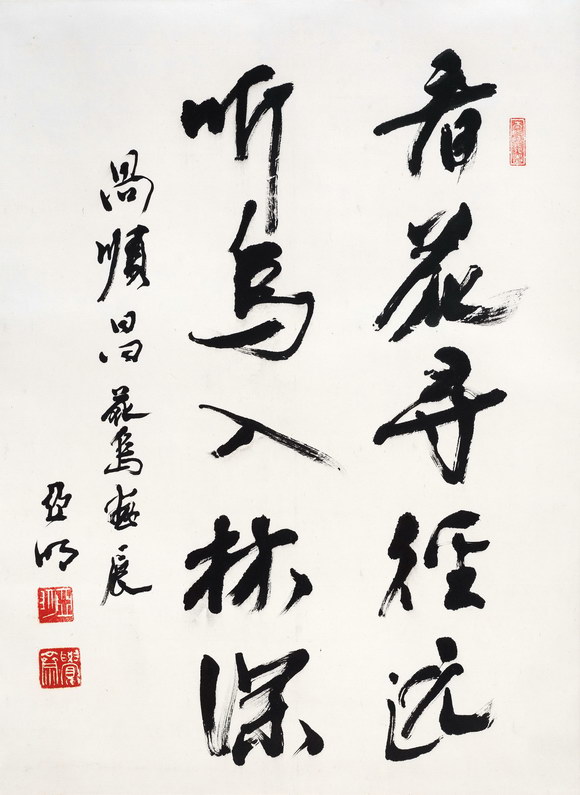 看花寻径远
听鸟入林深
順昌花鸟画展
亚明